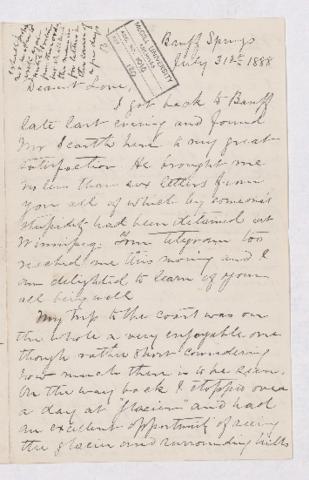 Banff Springs
July 31st 1888
McGILL UNIVERSITY
ARCHIVES
ACC. NO. 1016
REF.
Dearest Love,
I got back to Banff
late last evening and found
Mr Scarth here to my great
satisfaction. He brought me
no less than six letters from
you all of which by someone's
stupidity had been detained at
Winnipeg. Your telegram too
reached me this morning and I
am delighted to learn of your
all being well
My trip to the coast was on
the whole a very enjoyable one
though rather short considering
how much there is to be seen.
On the way back I stopped over
a day at "Glacier" and had
an excellent opportunity of seeing
the glacier and surrounding hills